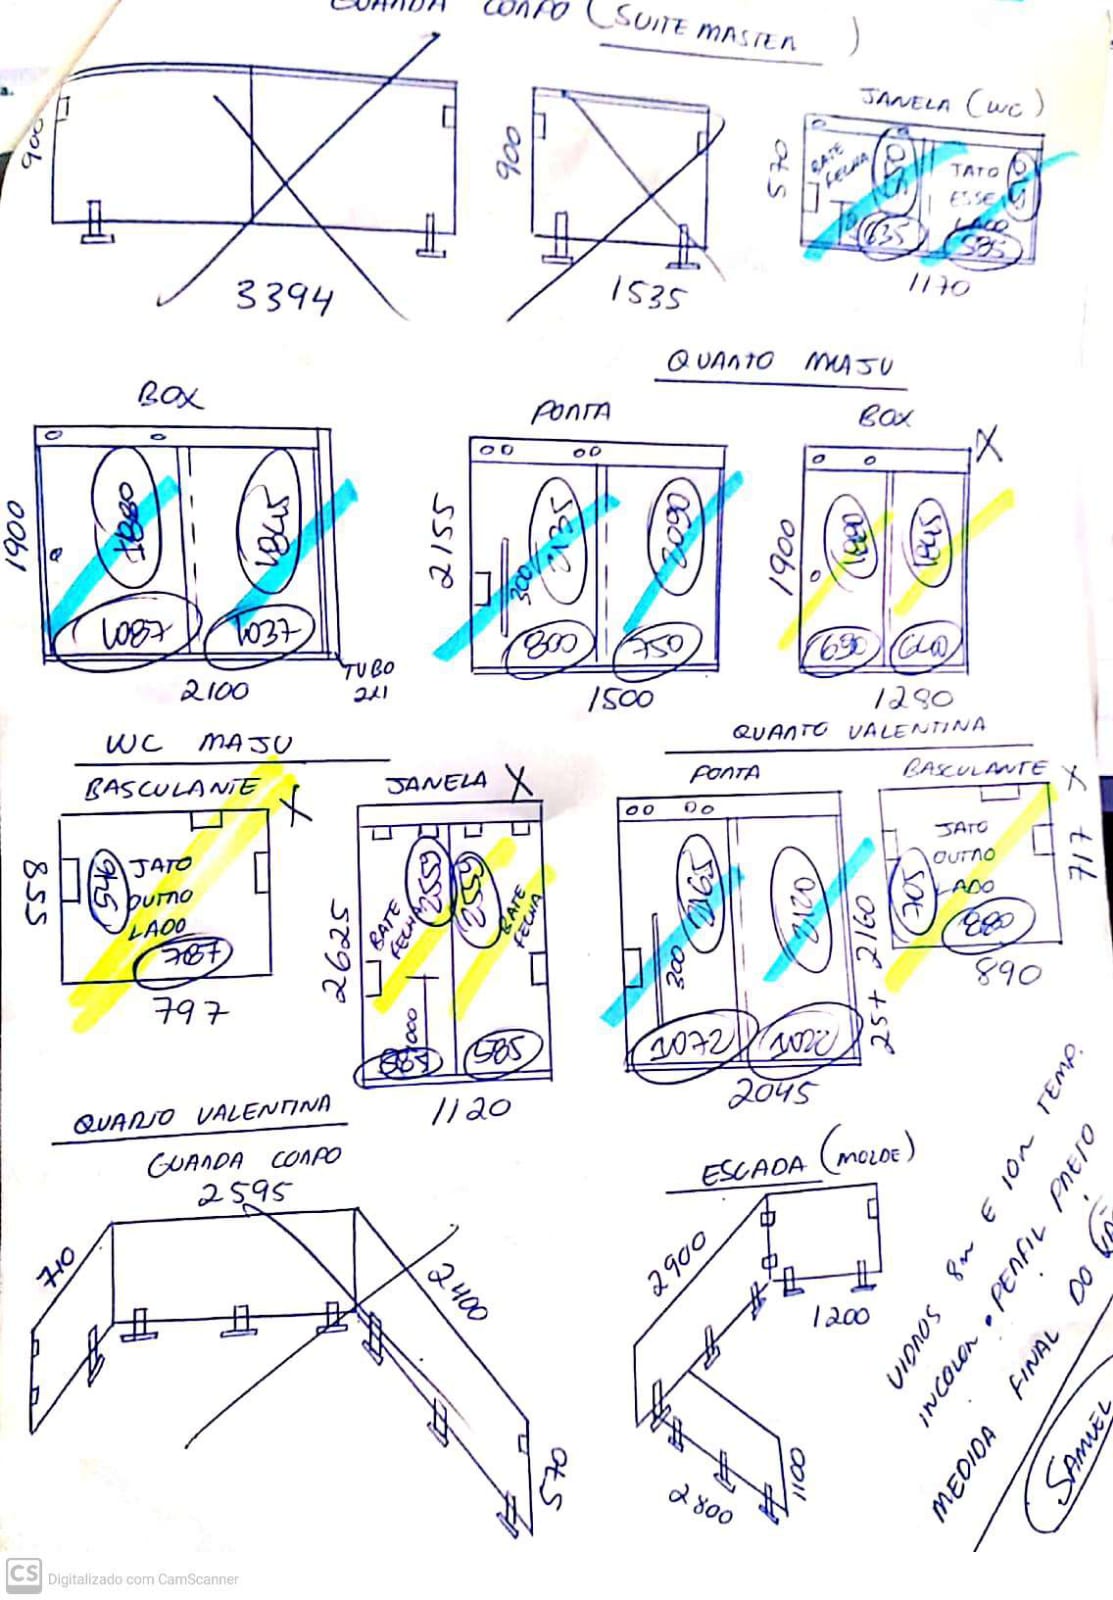 GUARDA CORPO (SUITE MASTER)
900
3394
900
1535
JANELA (WC)
570
BATE
FECHA
635
JATO
ESSE
LADO
585
1170
BOX
1900
1880
1845
1087
1037
2100
TUBO
2x1
QUARTO MAJU
PORTA
2155
300
2135
2090
800
750
1500
BOX
X
1900
1880
1845
690
640
1280
WC MAJU
BASCULANTE
X
855
JATO
OUTRO
LADO
787
797
JANELA X
2625
BATE
FECHA
2559
2559
BATE
FECHA
1000
585
585
1120
QUARTO VALENTINA
PORTA
300
2165
2120
1072
1022
2045
25+ 2160
BASCULANTE X
717
JATO
OUTRO
LADO
705
880
890
QUARTO VALENTINA
GUARDA CORPO
2595
710
2400
570
ESCADA (MOLDE)
2900
1200
2800
1100
VIDROS 8m E 10m TEMP.
INCOLOR • PERFIL PRETO
MEDIDA FINAL DO
SAMUEL
CS Digitalizado com CamScanner